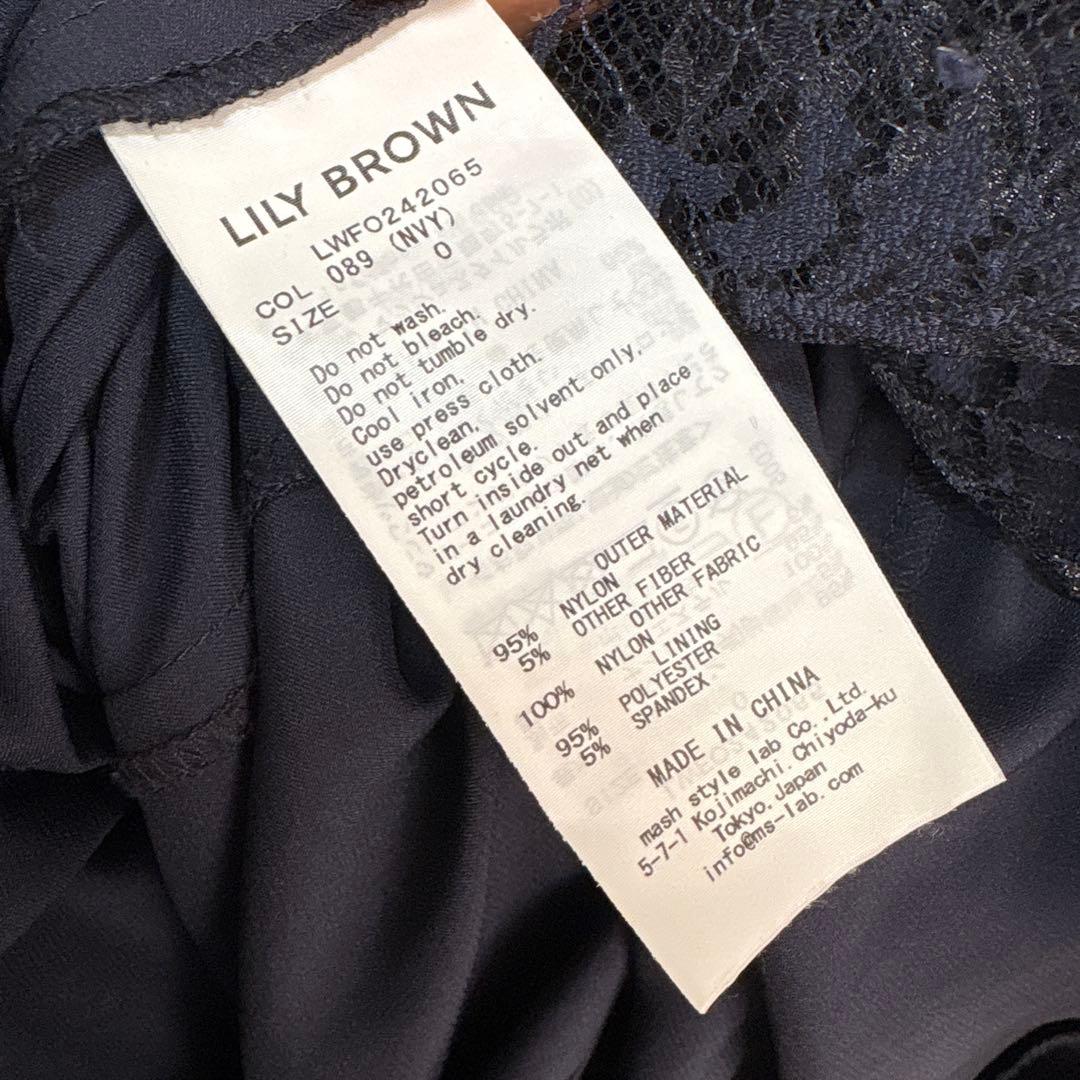 LILY BROWN
LWFO242065
COL 089 (NVY)
SIZE 0
Do not wash.
Do not bleach.
Do not tumble dry.
Cool iron,
use press cloth.
Dryclean,
petroleum solvent only,
short cycle.
Turn inside out and place
in a laundry net when
dry cleaning.
OUTER MATERIAL
95% NYLON
5% OTHER FIBER
OTHER FABRIC
100% NYLON
LINING
95% POLYESTER
5% SPANDEX
MADE IN CHINA
mash style lab Co.,Ltd.
5-7-1 Kojimachi.Chiyoda-ku
Tokyo.Japan
info@ms-lab.com